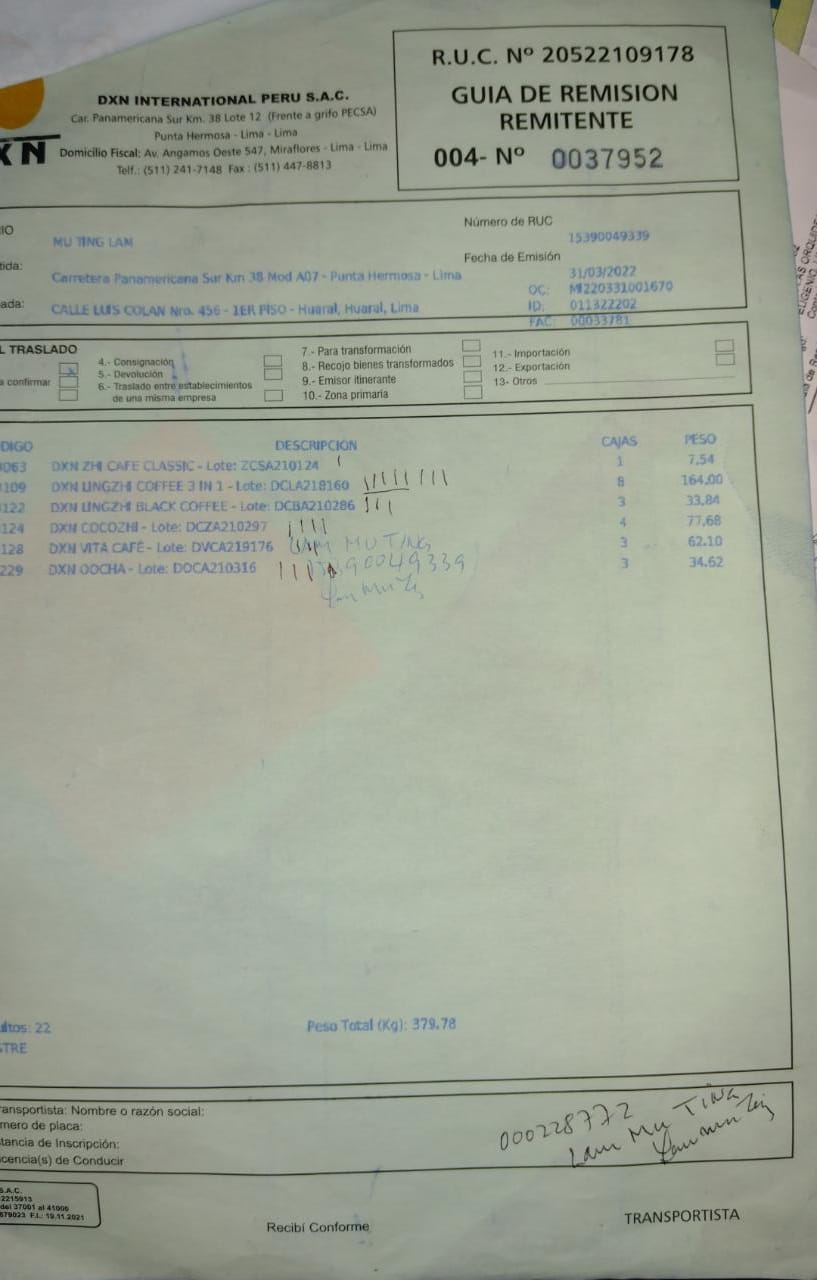 R.U.C. Nº 20522109178
GUIA DE REMISION
REMITENTE
004- Nº 0037952
DXN INTERNATIONAL PERU S.A.C.
Car. Panamericana Sur Km. 38 Lote 12 (Frente a grifo PECSA)
Punta Hermosa - Lima - Lima
Domicilio Fiscal: Av. Angamos Oeste 547, Miraflores - Lima - Lima
Telf.: (511) 241-7148 Fax : (511) 447-8813
XN
RIO
MU TING LAM
Número de RUC
15390049339
Fecha de Emisión
31/03/2022
tida:
Carretera Panamericana Sur Km 38 Mod A07 - Punta Hermosa - Lima
OC: MI220331001670
ada:
CALLE LUIS COLAN Nro. 456 - 1ER PISO - Huaral, Huaral, Lima
ID: 011322202
FAC: 00033781
L TRASLADO
a confirmar
4.- Consignación
5.- Devolución
6.- Traslado entre establecimientos
de una misma empresa
7.- Para transformación
8.- Recojo bienes transformados
9.- Emisor itinerante
10.- Zona primaria
11.- Importación
12.- Exportación
13- Otros
DIGO DESCRIPCION CAJAS PESO
063 DXN ZHI CAFE CLASSIC - Lote: ZCSA210124 1 7.54
109 DXN LINGZHI COFFEE 3 IN 1 - Lote: DCLA218160 8 164.00
122 DXN LINGZHI BLACK COFFEE - Lote: DCBA210286 3 33.84
124 DXN COCOZHI - Lote: DCZA210297 4 77.68
128 DXN VITA CAFÉ - Lote: DVCA219176 LAM MU TING 3 62.10
229 DXN OOCHA - Lote: DOCA210316 15390049339 3 34.62
ultos: 22
Peso Total (Kg): 379.78
STRE
ransportista: Nombre o razón social:
mero de placa:
tancia de Inscripción:
cencia(s) de Conducir
000228772
Lam Mu TING
S.A.C.
2215913
del 37001 al 41000
879023 F.I.: 19.11.2021
Recibí Conforme
TRANSPORTISTA